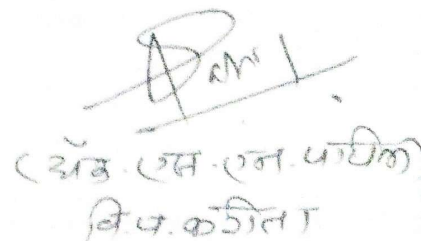 (अॅड. एस. एन. पाटील
वि.प. करीता